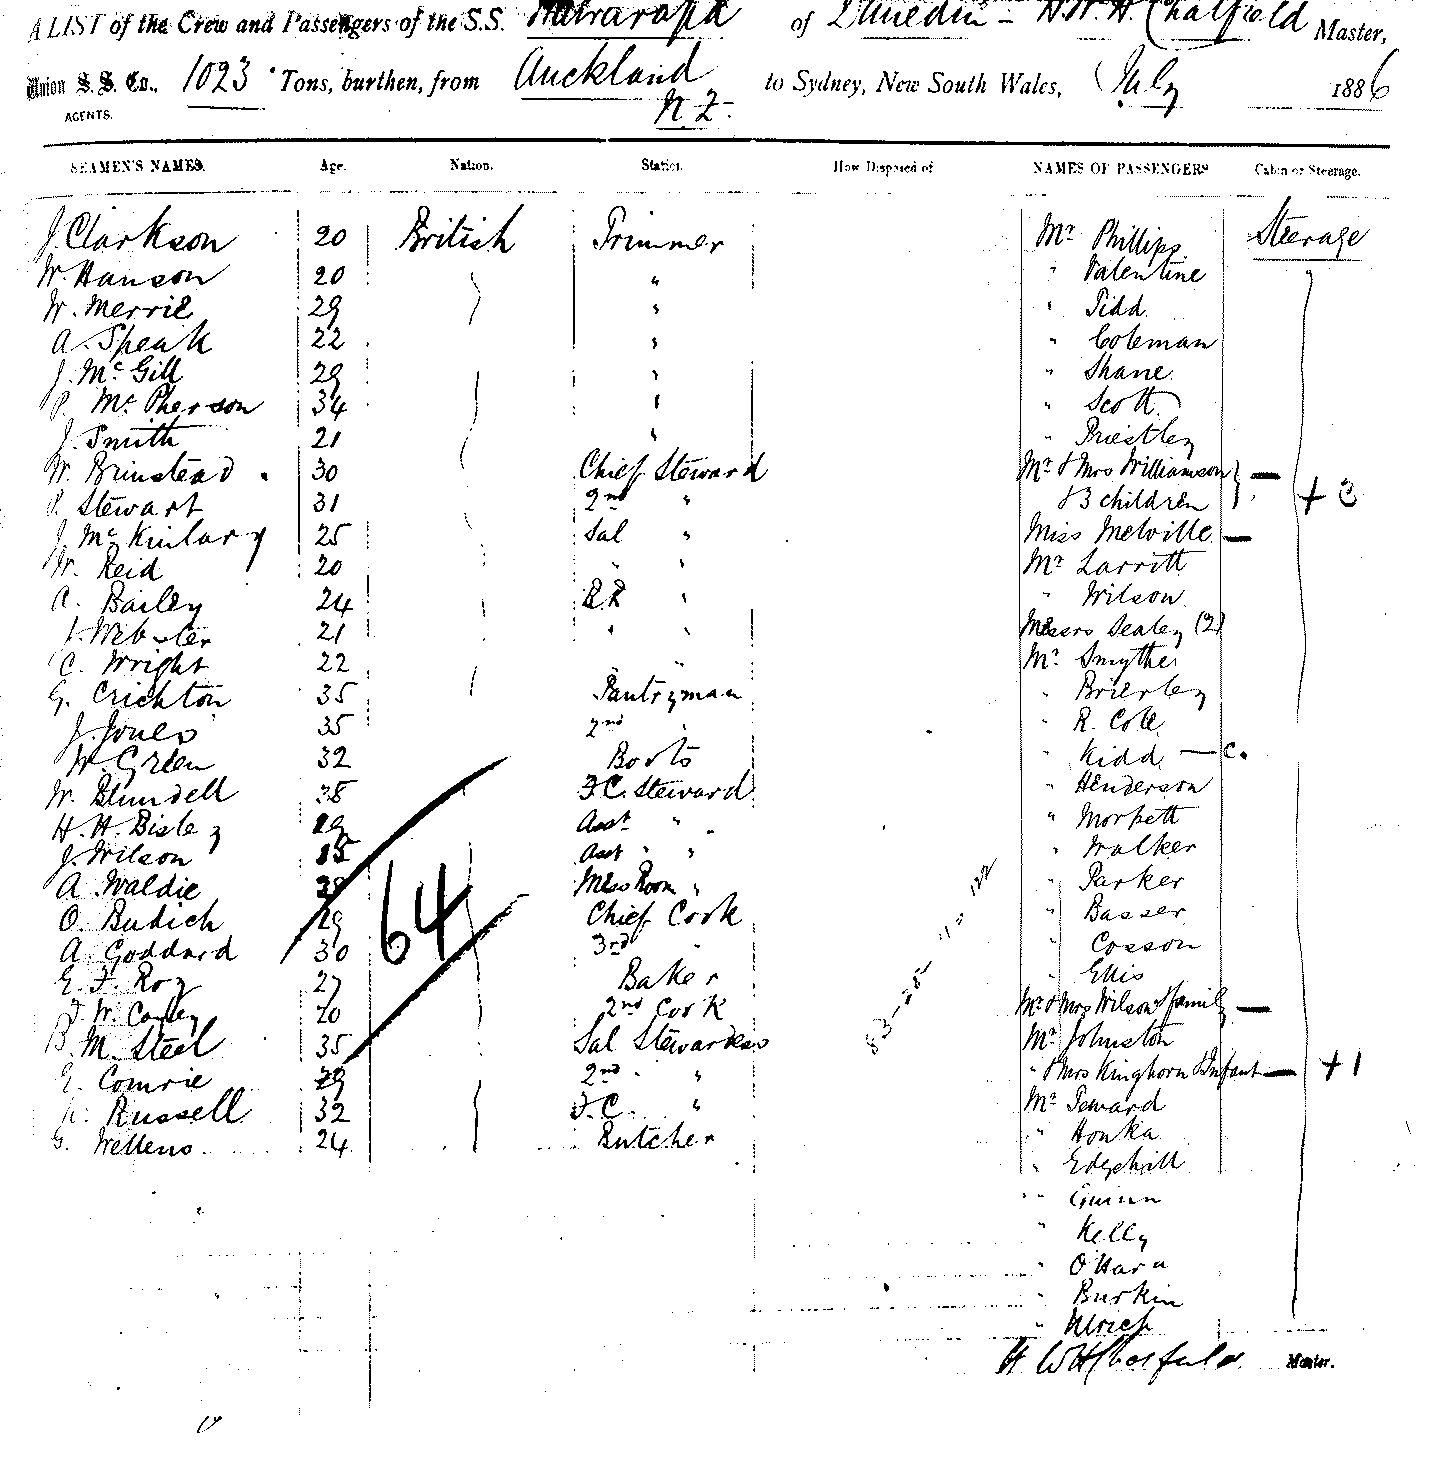 A LIST of the Crew and Passengers of the S.S. Wairarapa of Dunedin - H.W.H. Chatfield Master,
Union S. S. Co., 1023 Tons, burthen, from Auckland to Sydney, New South Wales, July 1886
AGENTS. N.Z.
SEAMEN'S NAMES. Age. Nation. Station. How Disposed of NAMES OF PASSENGERS Cabin or Steerage.
J. Clarkson 20 British Trimmer Mr Phillips Steerage
W. Hanson 20 " " Valentine
W. Merrie 29 " " Tidd
A. Speak 22 " " Coleman
J. Mc Gill 29 " " Shane
P. Mc Pherson 34 " " Scott
J. Smith 21 " " Priestley
W. Brinstead 30 Chief Steward Mr & Mrs Williamson —
P. Stewart 31 2nd " & 3 children + 3
J. Mc Kinlary 25 Sal " Miss Melville —
W. Reid 20 " " Mr Larritt
A. Bailey 24 B.R " " Wilson
J. Webster 21 " " Messrs Sealey (2)
C. Wright 22 " Mr Smythe
G. Crichton 35 Pantryman " Brierley
J. Jones 35 2nd " " R. Cole
W. Green 32 Boots " Kidd — C.
W. Blundell 38 F.C. Steward " Henderson
H. H. Bisley 29 Asst " " " Morpett
J. Wilson 35 Asst " " " Walker
A. Waldie Mess Room " " Parker
O. Budich 29 Chief Cook " Basser
64
A. Goddard 30 3rd " " Cosson
E. F. Roy 27 Baker " Ellis
F. W. 20 2nd Cook Mr & Mrs Wilson & family —
B. M. Steel 35 Sal Stewardess Mr Johnston
E. Comrie 29 2nd " " " & Mrs Kinghorn & Infant — + 1
Russell 32 F.C. " Mr Seward
G. Wellens 24 Butcher " Honka
" Edgehill
" Guinn
" Kelly
" O'Hara
" Burkin
" Ulrich
H W H Chatfield Master.